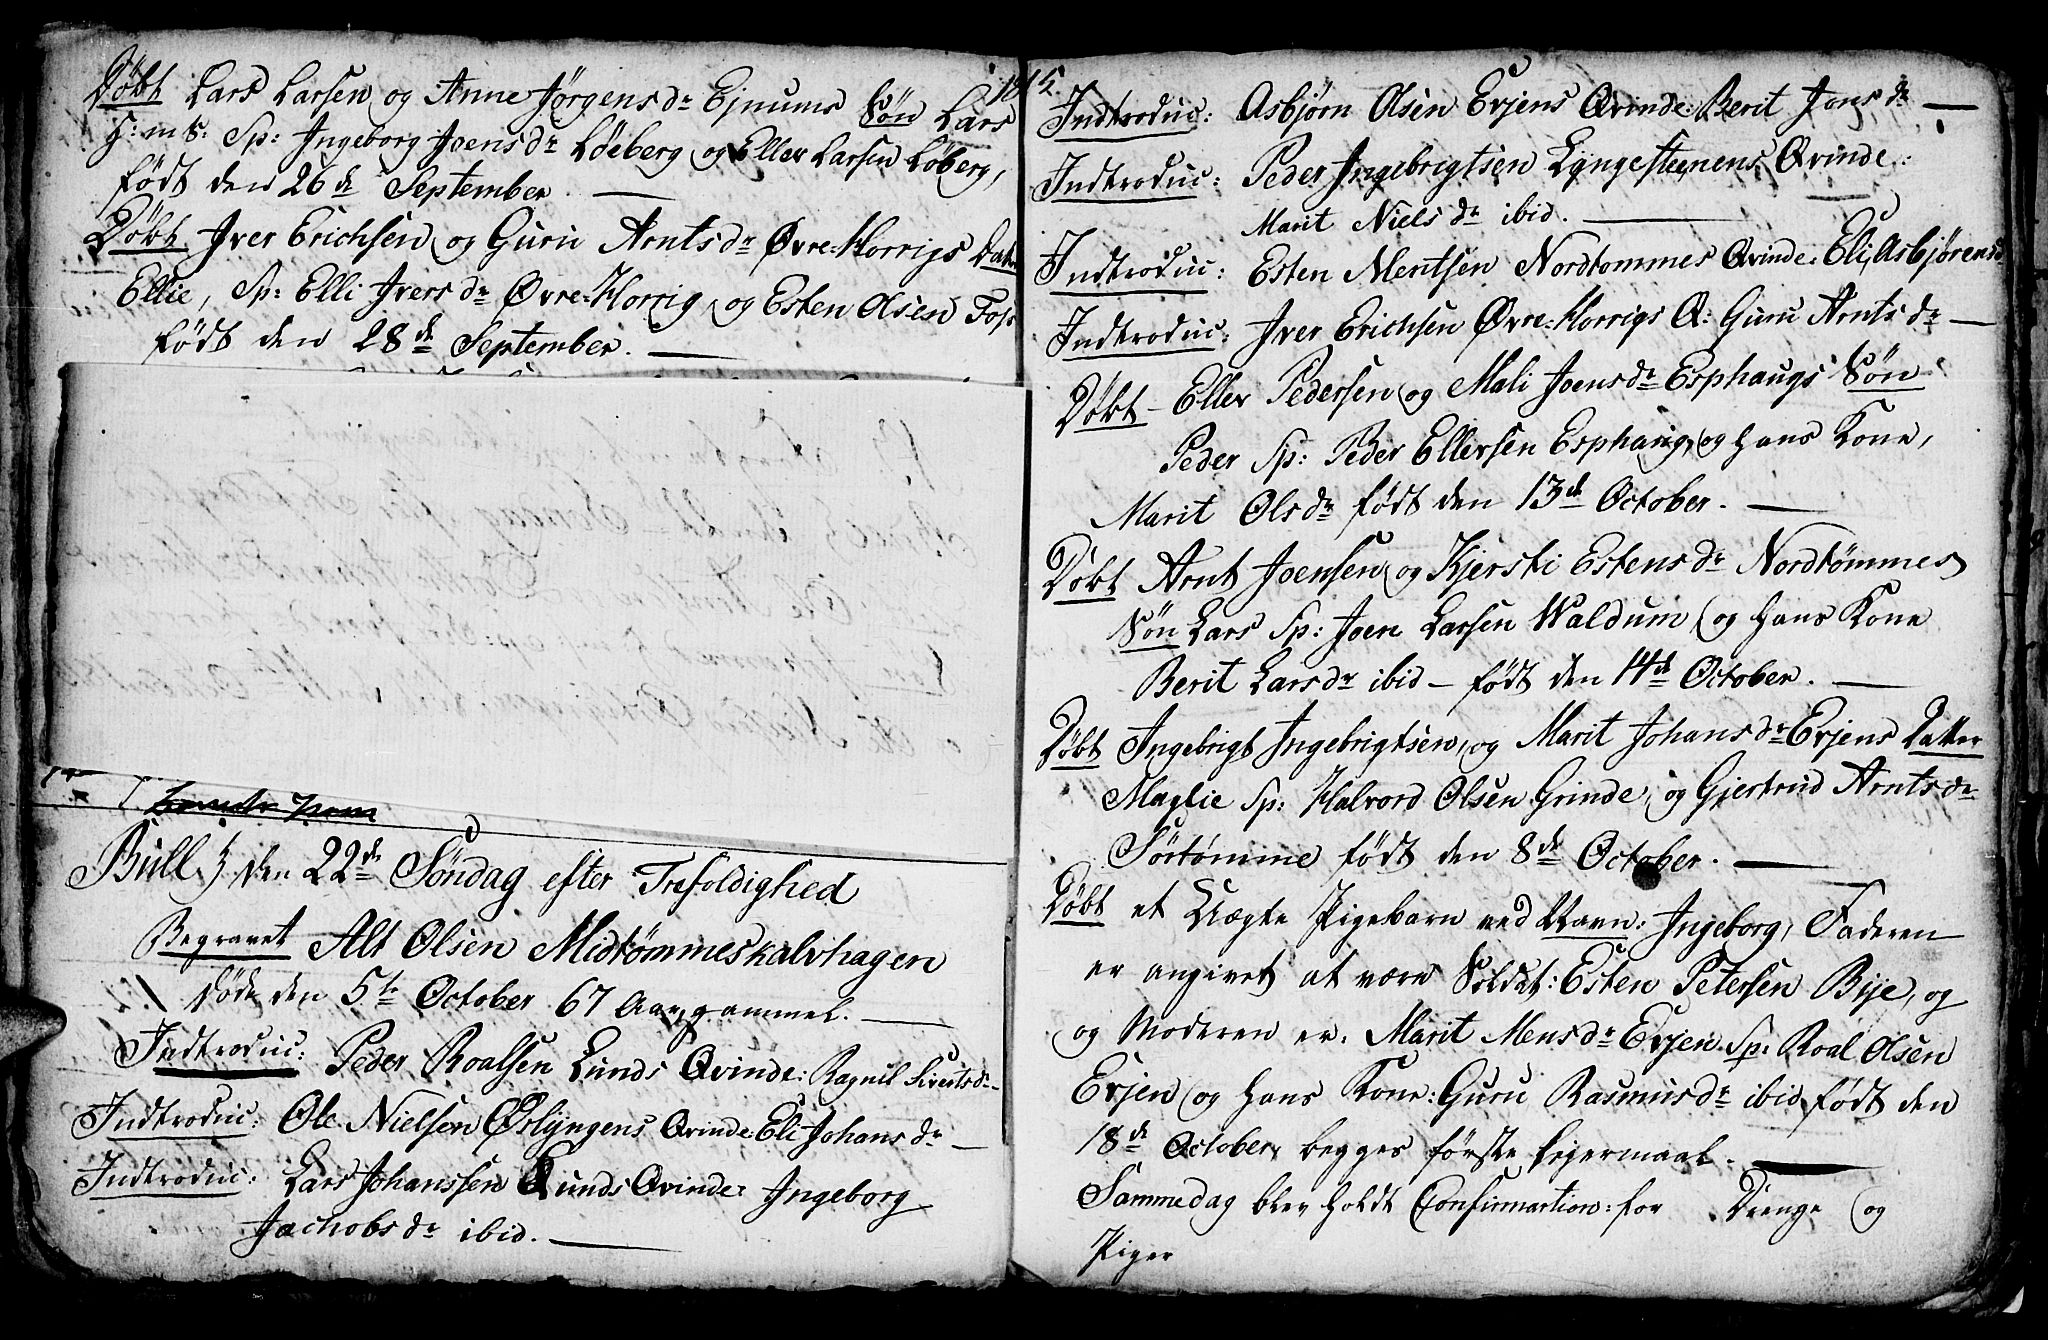 Døbt Lars Larsen og Anne Jørgensdr Ejnums Søn Lars
H: m S: Sp: Ingeborg Joensdr Løeberg og Eller Larsen Løberg,
født den 26de September.
Døbt Iver Erichsen og Guru Arntsdr Øvre-Horrigs Datter
Ellie, Sp: Elli Iversdr Øvre-Horrig og Esten Olsen Fos
født den 28de September.
Bull. } den 22de Søndag efter Trefoldighed
Begravet Alt Olsen Midtømmeskalvhagen
døde den 5te October 67 Aar gammel.
Indtroduc: Peder Roalsen Lunds Qvinde: Ragnil Sivertsdr
Indtroduc: Ole Nielsen Øslyngens Qvinde: Eli Johansdr
Indtroduc: Lars Johanssen Lunds Qvinde: Ingeborg
Jachobsdr ibid.
Indtroduc: Asbjørn Olsen Evjens Qvinde: Berit Jonsdr
Indtroduc: Peder Ingebrigtsen Lyngesteenens Qvinde:
Marit Nielsdr ibid.
Indtroduc: Esten Mentsen Nordtømmes Qvinde: Eli Asbjørensd
Indtroduc: Iver Erichsen Øvre-Horrigs Q: Guru Arntsdr
Døbt - Eller Pedersen og Mali Joensdr Esphaugs Søn
Peder Sp: Peder Ellersen Esphaug, og hans Kone,
Marit Olsdr født den 13de October.
Døbt Arnt Joensen og Kjersti Estensdr Nordtømmes
Søn Lars Sp: Joen Larsen Waldum og hans Kone
Berit Larsdr ibid - født den 14de October.
Døbt Ingebrigt Ingebrigtsen, og Marit Johansdr Evjens Datter
Maglie Sp: Halvord Olsen Grinde, og Gjertrud Arntsdr
Sørtømme født den 8de October.
Døbt et Uægte Pigebarn ved Navn: Ingeborg, Faderen
er angivet at være Soldat: Esten Petersen Bije, og
og Moderen er: Marit Mensdr Evjen. Sp: Roal Olsen
Evjen og hans Kone: Guru Rasmusdr ibid født den
18de October, begges første Lejermaal.
Sammedag blev holdt Confirmartion: for Drenge og
Piger